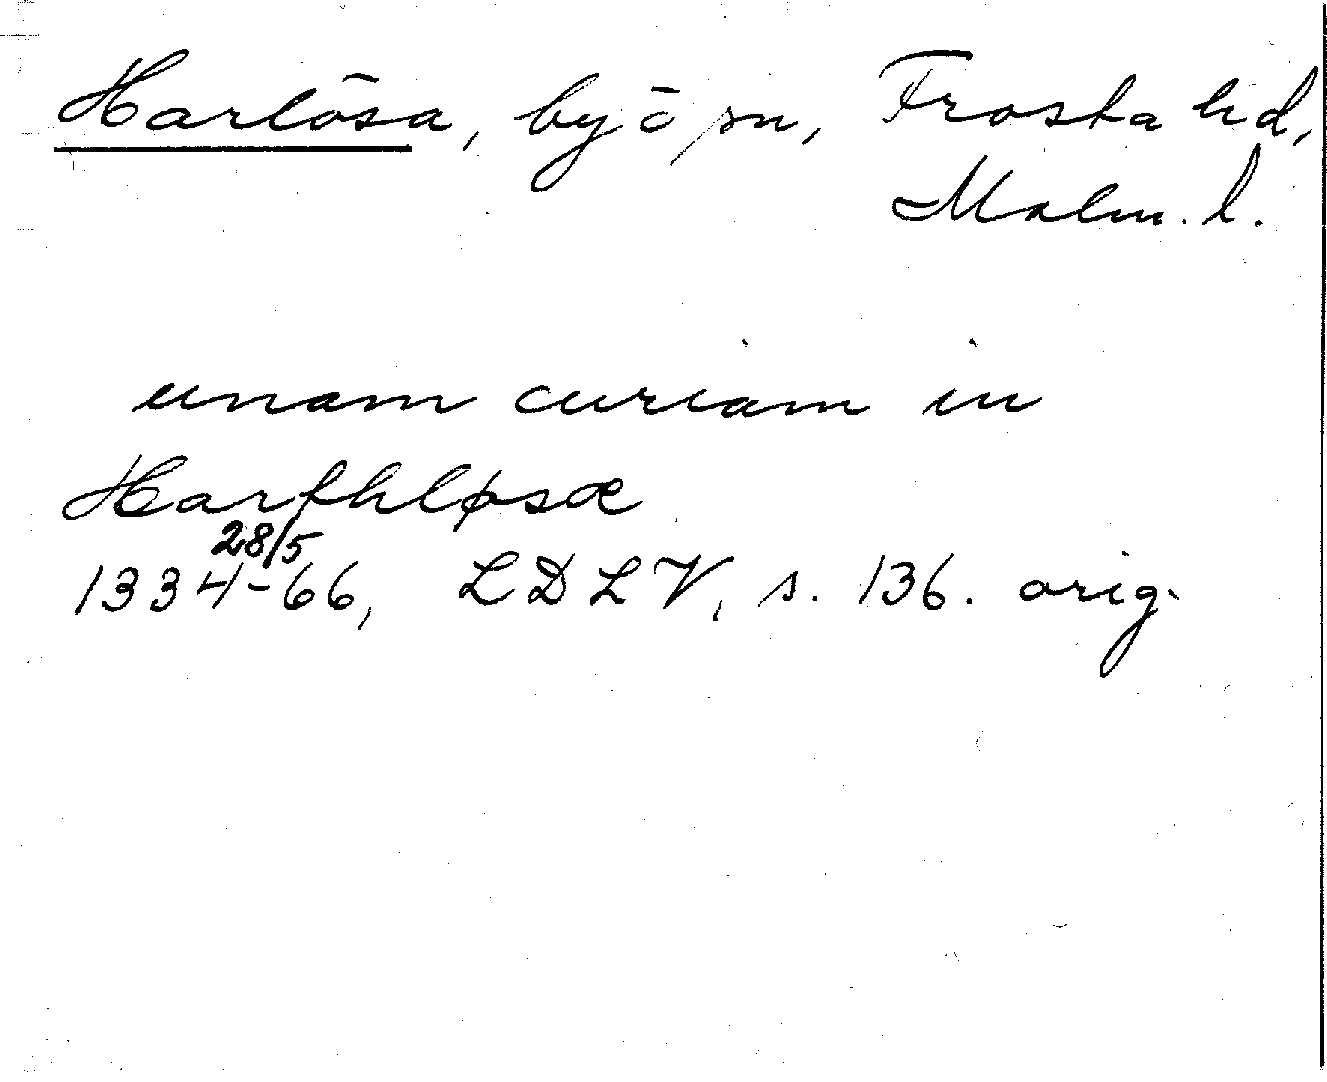 Harlösa, by ö sn, Frosta hd,
Malm. l.
unam curiam in
Harfhløsæ
28/5
1334-66, LDLV, s. 136. orig.